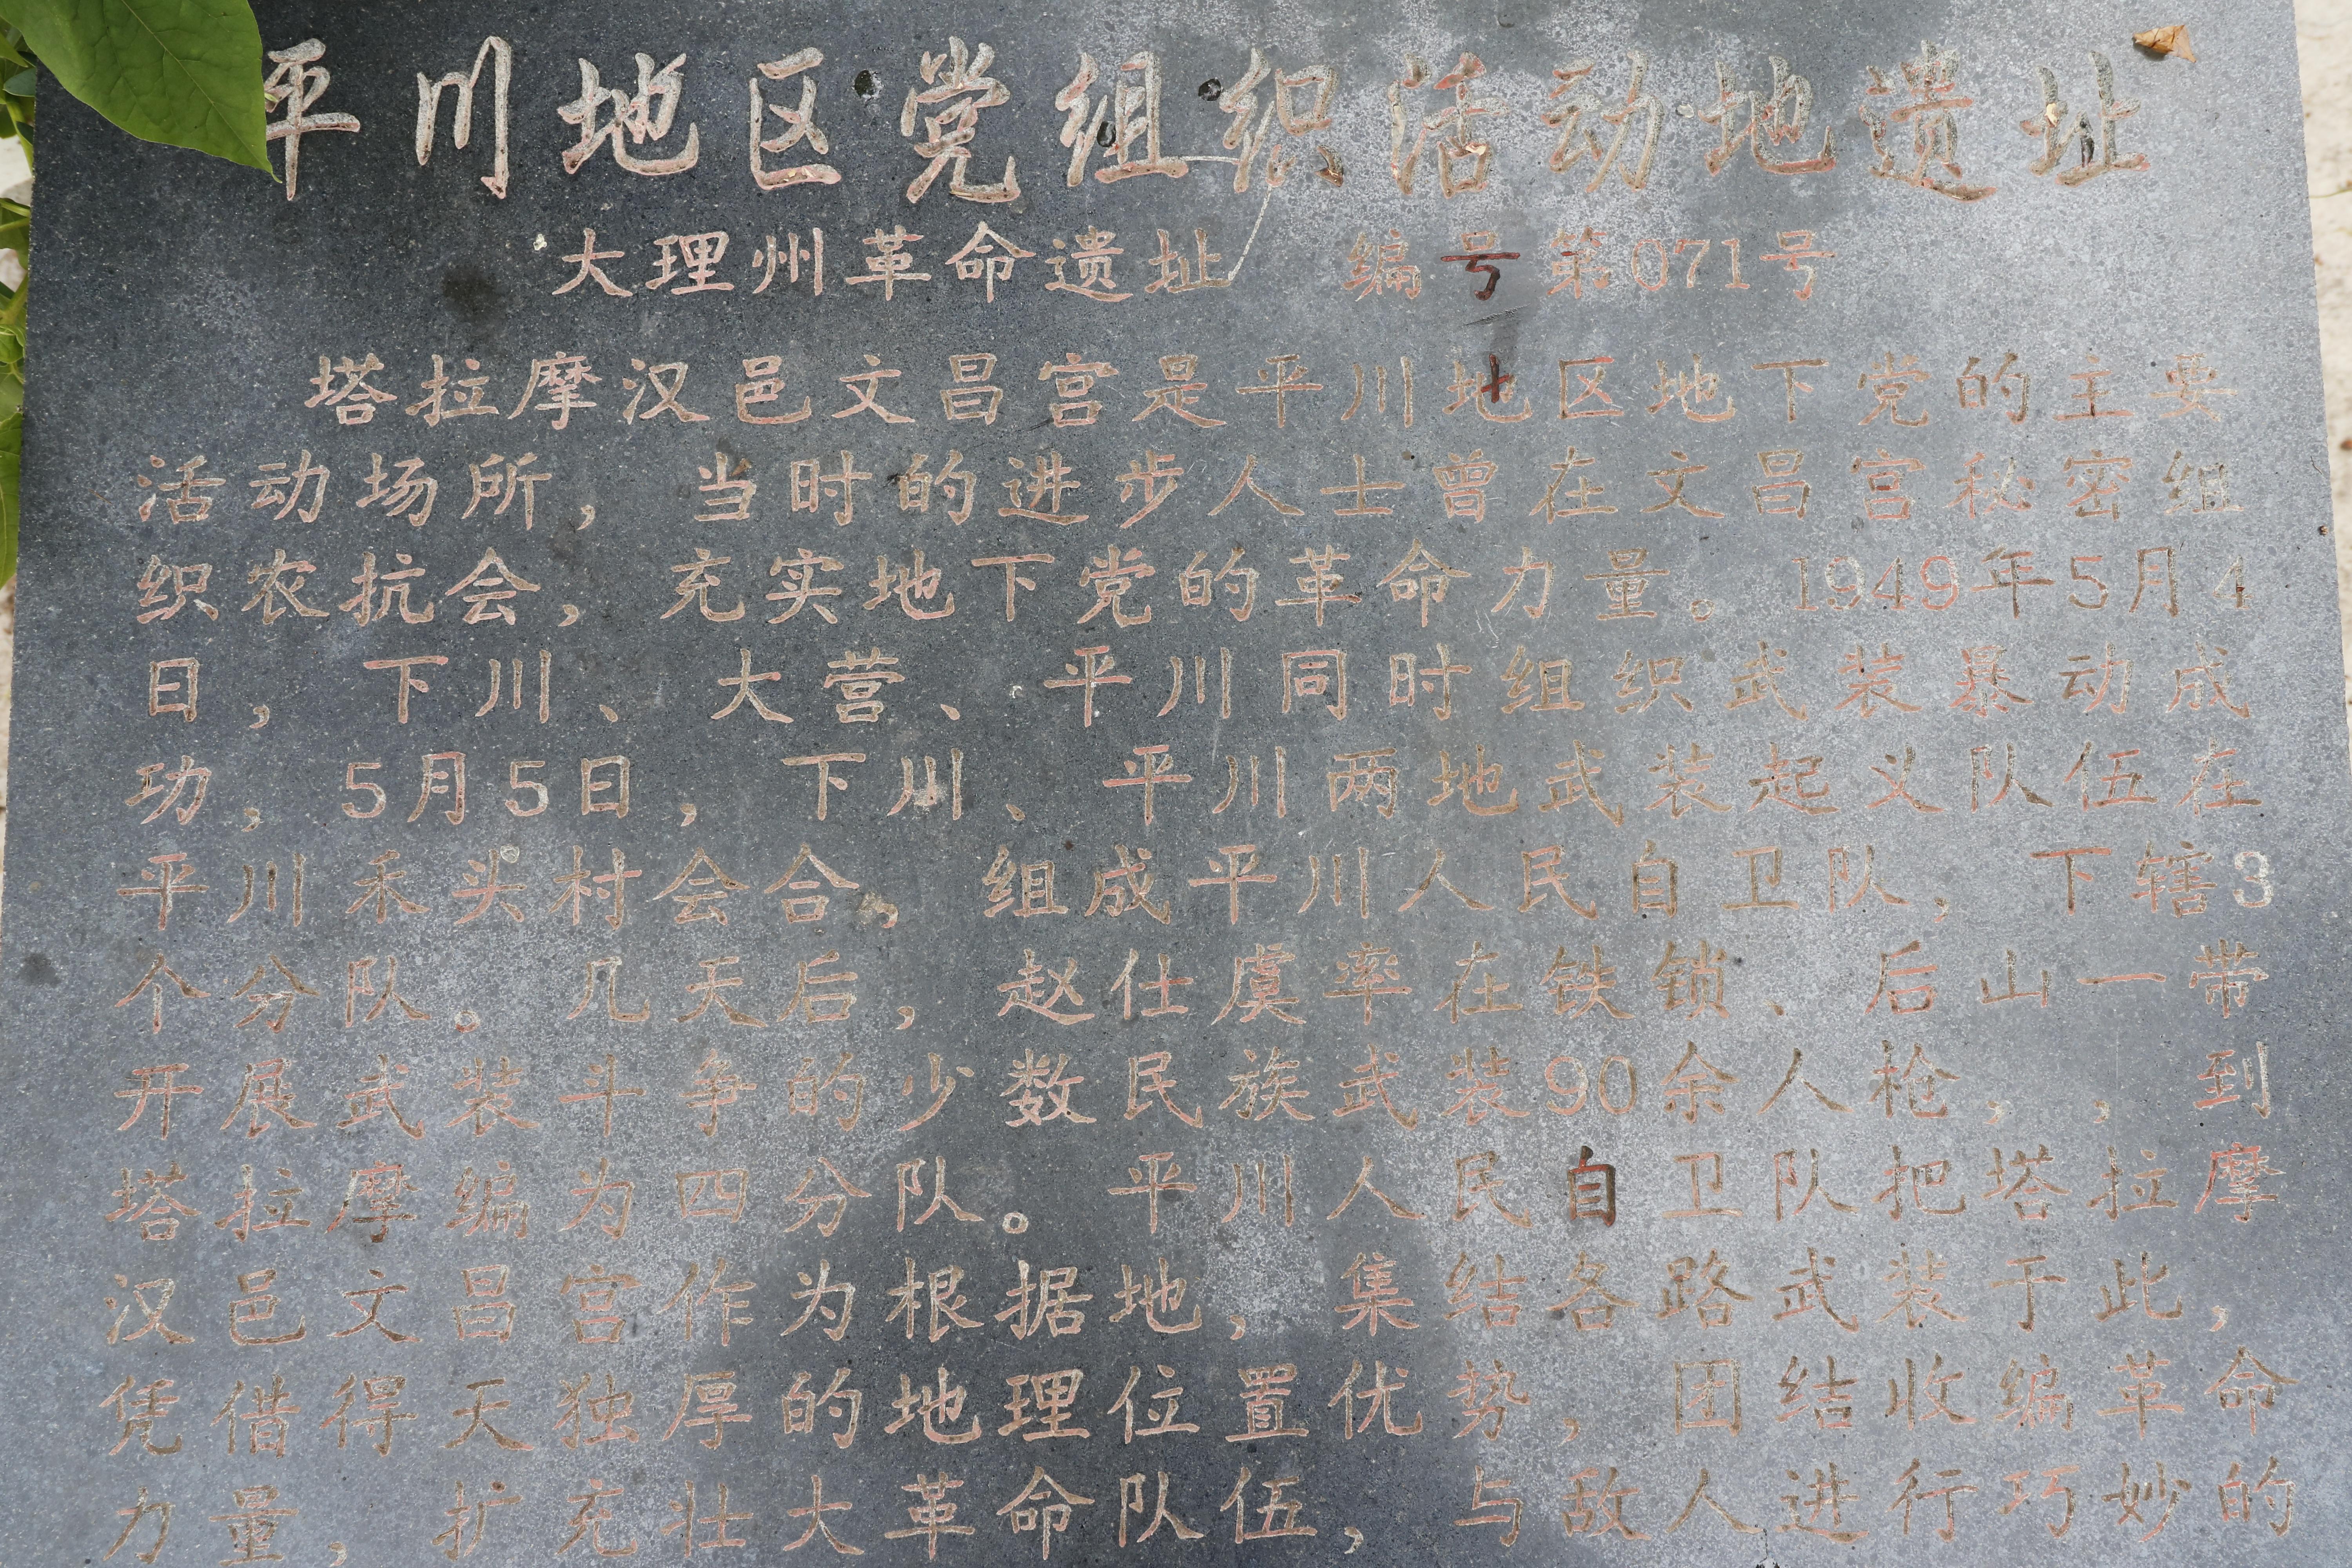 平川地区党组织活动地遗址
大理州革命遗址 编号第071号
塔拉摩汉邑文昌宫是平川地区地下党的主要
活动场所，当时的进步人士曾在文昌宫秘密组
织农抗会，充实地下党的革命力量。1949年5月4
日，下川、大营、平川同时组织武装暴动成
功，5月5日，下川、平川两地武装起义队伍在
平川禾头村会合。组成平川人民自卫队，下辖3
个分队。几天后，赵仕虞率在铁锁、后山一带
开展武装斗争的少数民族武装90余人枪，，到
塔拉摩编为四分队。平川人民自卫队把塔拉摩
汉邑文昌宫作为根据地，集结各路武装于此，
凭借得天独厚的地理位置优势，团结收编革命
力量，扩充壮大革命队伍，与敌人进行巧妙的